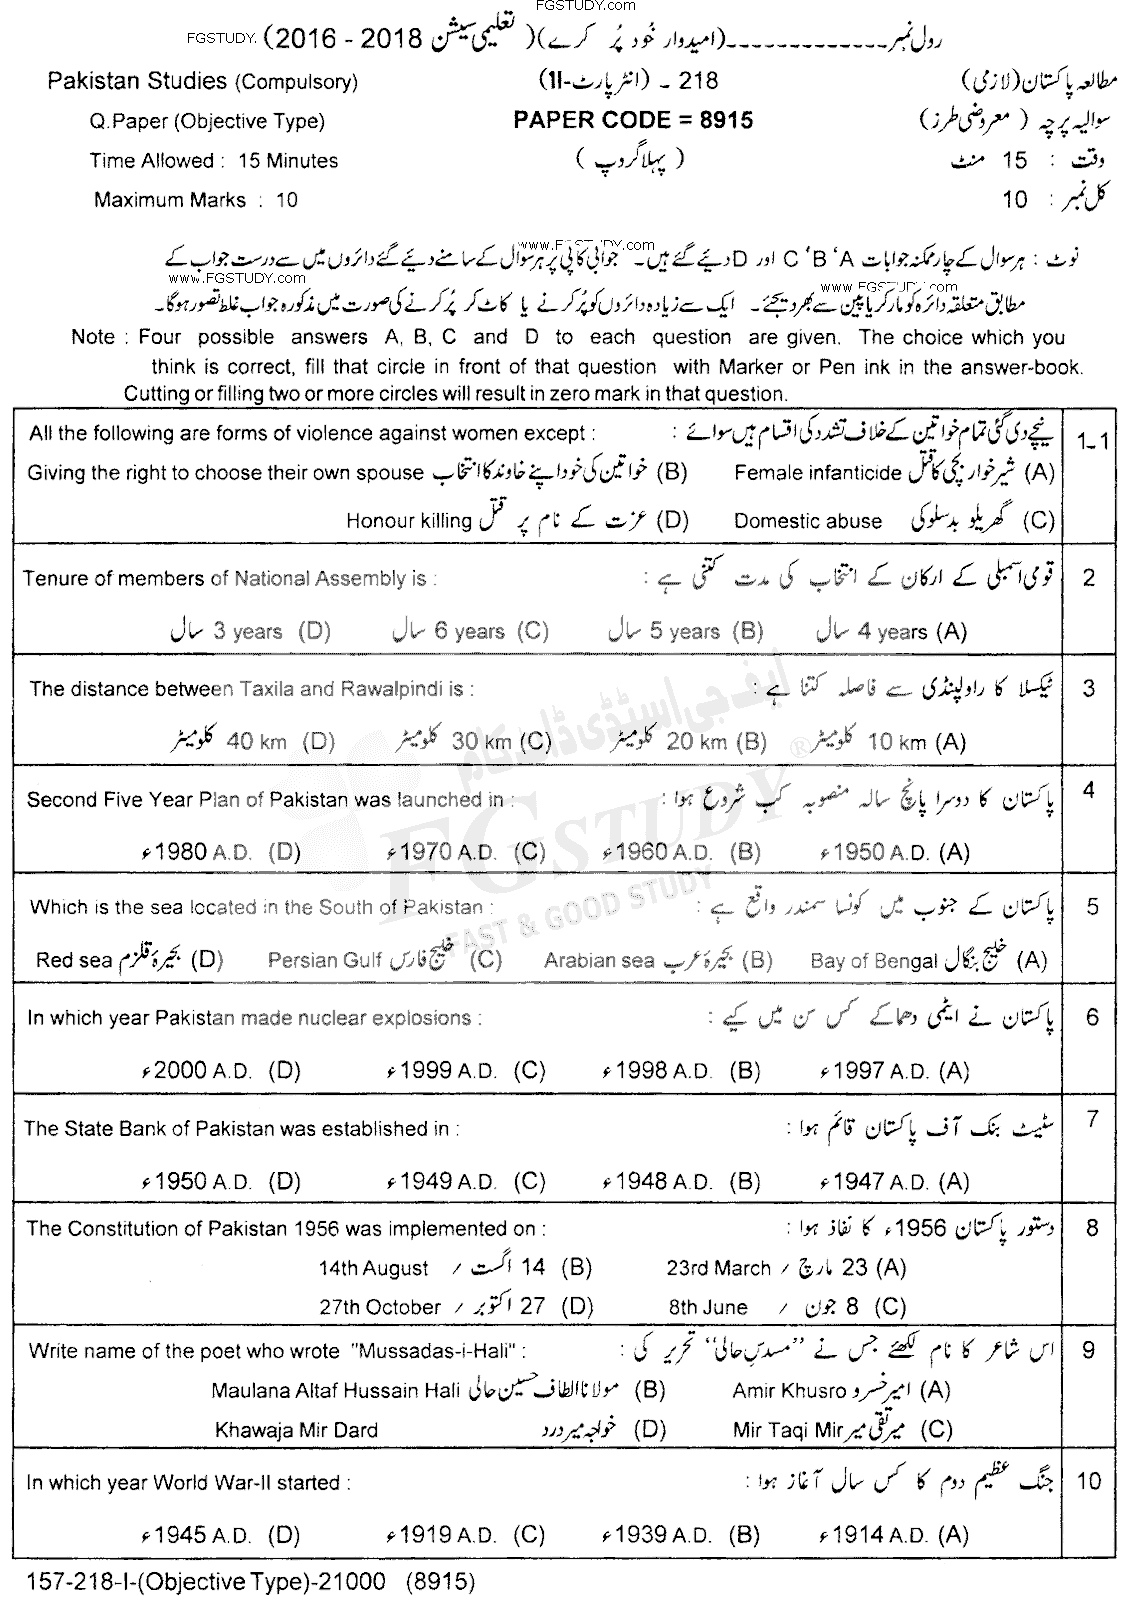 FGSTUDY.com
رول نمبر ـــــــــــــ (امیدوار خود پُر کرے) ( تعلیمی سیشن 2018 - 2016) FGSTUDY.
Pakistan Studies (Compulsory) 218 ـ (انٹر پارٹ-II) مطالعہ پاکستان (لازمی)
Q.Paper (Objective Type) PAPER CODE = 8915 سوالیہ پرچہ ( معروضی طرز )
Time Allowed : 15 Minutes ( پہلا گروپ ) وقت : 15 منٹ
Maximum Marks : 10 کل نمبر : 10
www.FGSTUDY.com
نوٹ : ہر سوال کے چار ممکنہ جوابات A ‘B ‘C اور D دیئے گئے ہیں۔ جوابی کاپی پر ہر سوال کے سامنے دیئے گئے دائروں میں سے درست جواب کے
www.FGSTUDY.com www.FGSTUDY.com
مطابق متعلقہ دائرہ کو مارکر یا پین سے بھر دیجئے۔ ایک سے زیادہ دائروں کو پُر کرنے یا کاٹ کر پُر کرنے کی صورت میں مذکورہ جواب غلط تصور ہوگا۔
Note : Four possible answers A, B, C and D to each question are given. The choice which you
think is correct, fill that circle in front of that question with Marker or Pen ink in the answer-book.
Cutting or filling two or more circles will result in zero mark in that question.
All the following are forms of violence against women except : نیچے دی گئی تمام خواتین کے خلاف تشدد کی اقسام ہیں سوائے : 1-1
Giving the right to choose their own spouse خواتین کی خود اپنے خاوند کا انتخاب (B) Female infanticide شیر خوار بچی کا قتل (A)
Honour killing عزت کے نام پر قتل (D) Domestic abuse گھریلو بدسلوکی (C)
Tenure of members of National Assembly is : قومی اسمبلی کے ارکان کے انتخاب کی مدت کتنی ہے : 2
سال 3 years (D) سال 6 years (C) سال 5 years (B) سال 4 years (A)
The distance between Taxila and Rawalpindi is : ٹیکسلا کا راولپنڈی سے فاصلہ کتنا ہے : 3
کلومیٹر 40 km (D) کلومیٹر 30 km (C) کلومیٹر 20 km (B) کلومیٹر 10 km (A)
ایف جی اسٹڈی ڈاٹ کام
Second Five Year Plan of Pakistan was launched in : پاکستان کا دوسرا پانچ سالہ منصوبہ کب شروع ہوا : 4
ء1980 A.D. (D) ء1970 A.D. (C) ء1960 A.D. (B) ء1950 A.D. (A)
FGSTUDY ®
FAST & GOOD STUDY
Which is the sea located in the South of Pakistan : پاکستان کے جنوب میں کونسا سمندر واقع ہے : 5
Red sea بحیرۂ قلزم (D) Persian Gulf خلیج فارس (C) Arabian sea بحیرۂ عرب (B) Bay of Bengal خلیج بنگال (A)
In which year Pakistan made nuclear explosions : پاکستان نے ایٹمی دھماکے کس سن میں کیے : 6
ء2000 A.D. (D) ء1999 A.D. (C) ء1998 A.D. (B) ء1997 A.D. (A)
The State Bank of Pakistan was established in : سٹیٹ بنک آف پاکستان قائم ہوا : 7
ء1950 A.D. (D) ء1949 A.D. (C) ء1948 A.D. (B) ء1947 A.D. (A)
The Constitution of Pakistan 1956 was implemented on : دستور پاکستان 1956ء کا نفاذ ہوا : 8
14th August / 14 اگست (B) 23rd March / 23 مارچ (A)
27th October / 27 اکتوبر (D) 8th June / 8 جون (C)
Write name of the poet who wrote "Mussadas-i-Hali" : اس شاعر کا نام لکھئے جس نے ’’مسدس حالی‘‘ تحریر کی : 9
Maulana Altaf Hussain Hali مولانا الطاف حسین حالی (B) Amir Khusro امیر خسرو (A)
Khawaja Mir Dard خواجہ میر درد (D) Mir Taqi Mir میر تقی میر (C)
In which year World War-II started : جنگ عظیم دوم کا کس سال آغاز ہوا : 10
ء1945 A.D. (D) ء1919 A.D. (C) ء1939 A.D. (B) ء1914 A.D. (A)
157-218-I-(Objective Type)-21000 (8915)